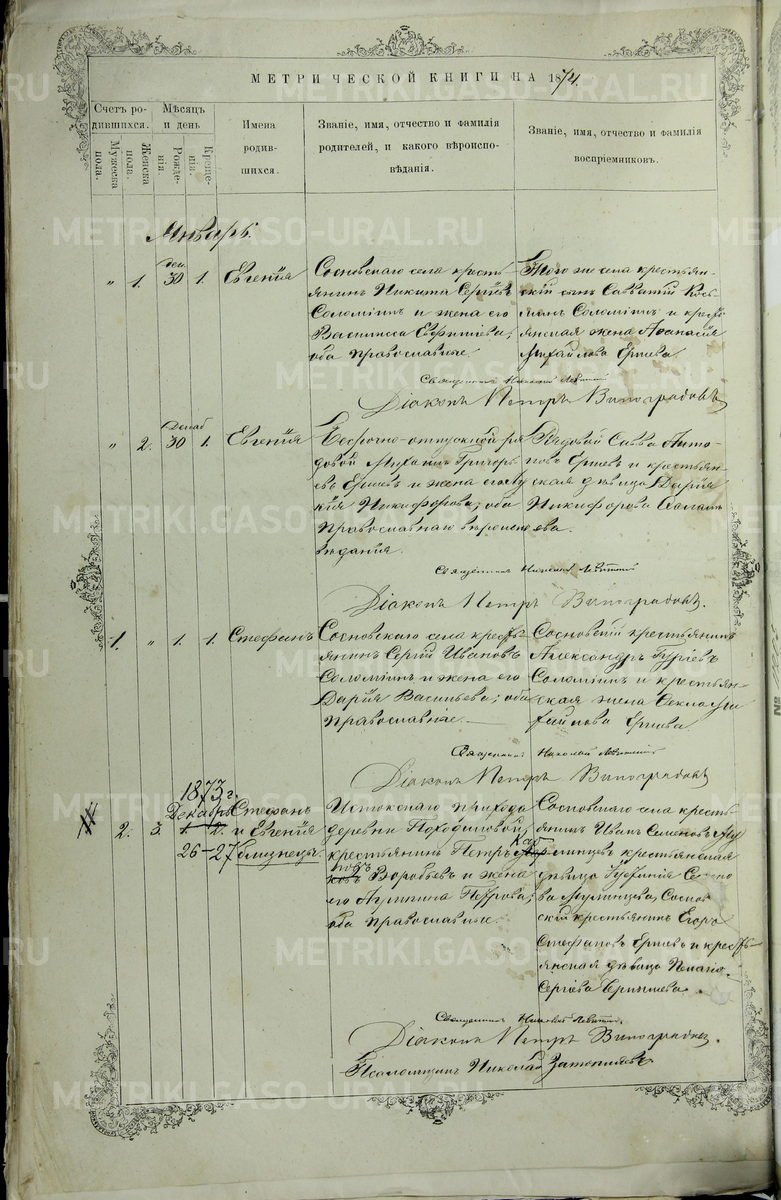 МЕТРИЧЕСКОЙ КНИГИ НА 1874.
Счетъ родившихся.
Мужеска пола.
Женска пола.
Мѣсяцъ и день
Рожденія.
Крещенія.
Имена родившихся.
Званіе, имя, отчество и фамилія родителей, и какого вѣроисповѣданія.
Званіе, имя, отчество и фамилія воспріемниковъ.
Январь.
дек.
" 1. 30 1. Евгенія
Сосновскаго села кресть-
янинъ Никита Сергіевъ
Соломинъ и жена его
Василисса Евфиміева,
оба православные.
Того же села крестьян-
скій сынъ Савватій Кось-
минъ Соломинъ и кресть-
янская жена Аѳанасія
Михайлова Ершева.
Священникъ Николай Левитскій
Діаконъ Петръ Виноградовъ
Декаб
" 2. 30 1. Евгенія
Безсрочно-отпускной ря-
довой Михаилъ Григорь-
евъ Ершевъ и жена его
Никифорова; оба
православнаго вѣроиспо-
вѣданія.
Рядовой Савва
Ершевъ и крестьян-
ская дѣвица Дарія
Никифорова
Священникъ Николай Левитскій
Діаконъ Петръ Виноградовъ.
1. " 1. 1. Стефанъ
Сосновскаго села кресть-
янинъ Сергій Ивановъ
Соломинъ и жена его
Дарія Васильева; оба
православные.
Сосновскій крестьянинъ
Александръ Гуріевъ
Соломинъ и крестьян-
ская жена Ѳекла Ми-
хайлова Ершева.
Священникъ Николай Левитскій
Діаконъ Петръ Виноградовъ
1873 г.
Декабрь
2. 3. 1. 2.
26-27
Стефанъ
и Евгенія
близнецы.
Истокскаго прихода
деревни Походиловой,
крестьянинъ Петръ
Воробьевъ и жена
его Акилина Петрова;
оба православные.
Сосновскаго села кресть-
янинъ Иванъ Семеновъ Му-
рлинцевъ крестьянская
дѣвица
Мурлинцева, Соснов-
скій крестьянинъ Егоръ
Стефановъ Ершевъ и кресть-
янская дѣвица Пелагія
Сергіева
Священникъ Николай Левитскій.
Діаконъ Петръ Виноградовъ.
Псаломщикъ Николай
METRIKI.GASO-URAL.RU